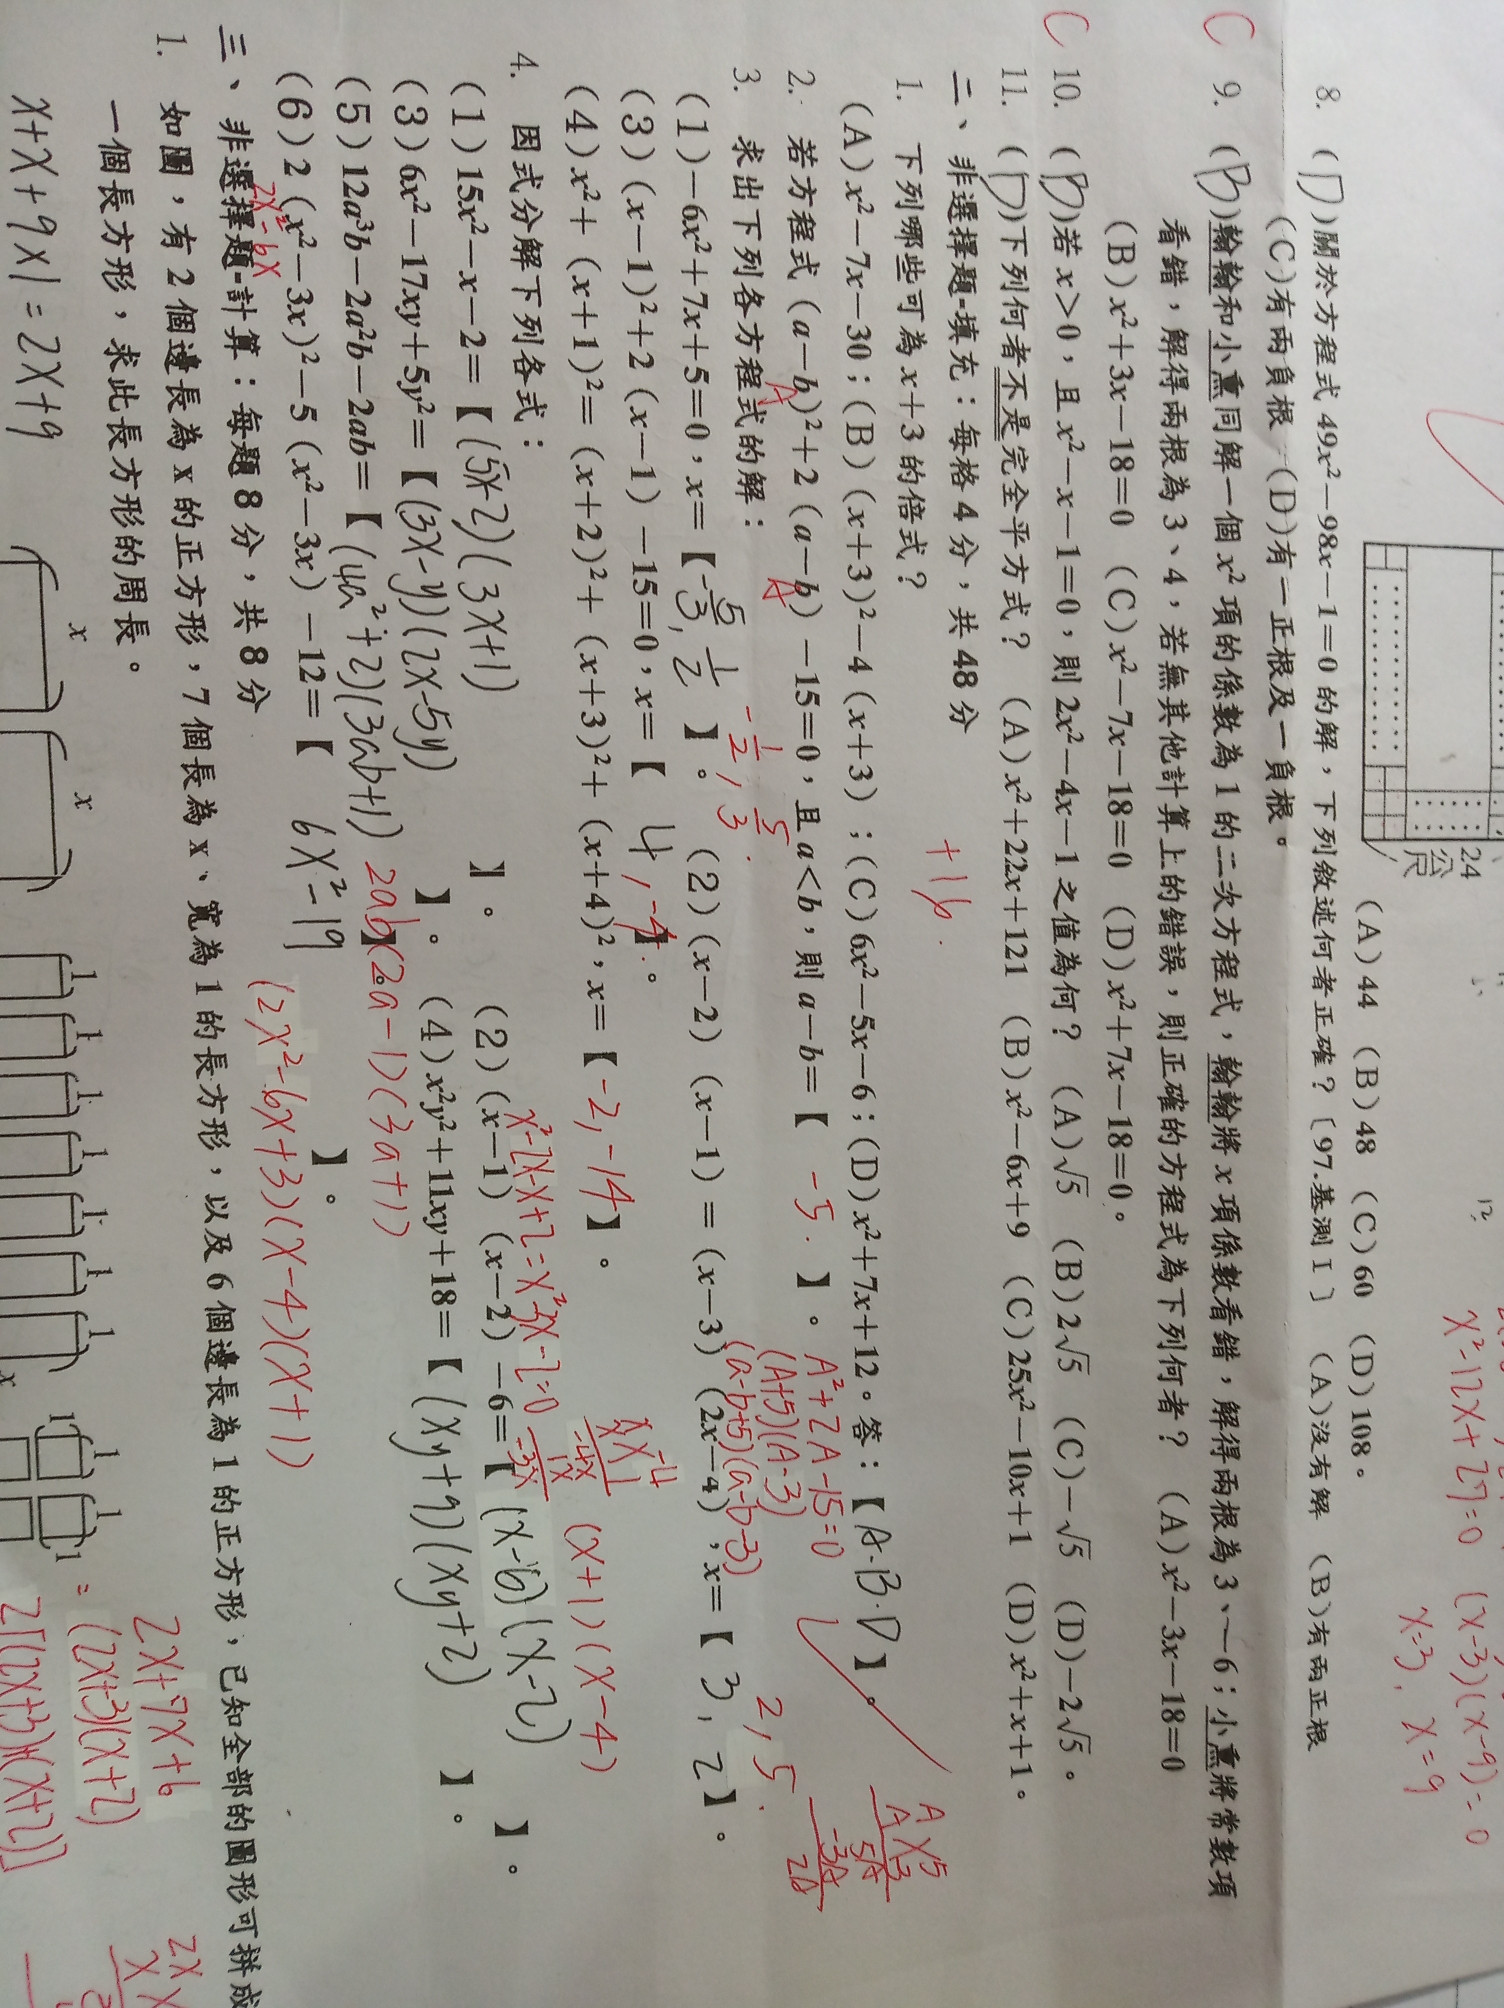 24
公尺
(A)44 (B)48 (C)60 (D)108。
x²-12x+27=0 (x-3)(x-9)=0
x=3, x=9
8. (D)關於方程式 49x²－98x－1=0 的解，下列敘述何者正確？〔97.基測Ⅰ〕 (A)沒有解 (B)有兩正根
(C)有兩負根 (D)有一正根及一負根。
C 9. (B)翰翰和小熏同解一個 x² 項的係數為 1 的二次方程式，翰翰將 x 項係數看錯，解得兩根為 3、－6；小熏將常數項
看錯，解得兩根為 3、4，若無其他計算上的錯誤，則正確的方程式為下列何者？ (A)x²－3x－18=0
(B)x²+3x－18=0 (C)x²－7x－18=0 (D)x²+7x－18=0。
C 10. (B)若 x>0，且 x²－x－1=0，則 2x²－4x－1 之值為何？ (A)√5 (B)2√5 (C)－√5 (D)－2√5。
11. (D)下列何者不是完全平方式？ (A)x²+22x+121 (B)x²－6x+9 (C)25x²－10x+1 (D)x²+x+1。
二、非選擇題-填充：每格 4 分，共 48 分
+16.
1. 下列哪些可為 x+3 的倍式？
(A)x²－7x－30；(B)(x+3)²－4(x+3)；(C)6x²－5x－6；(D)x²+7x+12。答：【A.B.D】。
2. 若方程式(a－b)²+2(a－b)－15=0，且 a<b，則 a－b=【 -5. 】。
A A
A²+2A-15=0
(A+5)(A-3)
(a-b+5)(a-b-3)
A 5
A -3
5A
-3A
2A
3. 求出下列各方程式的解：
-1/2, 5/3.
2, 5.
(1)－6x²+7x+5=0，x=【-5/3, 1/2 】。 (2)(x－2)(x－1)=(x－3)(2x－4)，x=【 3, 2 】。
(3)(x－1)²+2(x－1)－15=0，x=【 4, -4 】。
(4)x²+(x+1)²=(x+2)²+(x+3)²+(x+4)²，x=【-2, -14】。
4. 因式分解下列各式：
x²-2x-x+2=x²-3x-2=0
x -4
x 1
-4x
1x
-3x
(x+1)(x-4)
(1)15x²－x－2=【(5x-2)(3x+1) 】。 (2)(x－1)(x－2)－6=【(x-6)(x-2) 】。
(3)6x²－17xy+5y²=【(3x-y)(2x-5y) 】。 (4)x²y²+11xy+18=【(xy+9)(xy+2) 】。
(5)12a³b－2a²b－2ab=【(4a²+2)(3ab+1) 】。 2ab(2a-1)(3a+1)
(6)2(x²－3x)²－5(x²－3x)－12=【 6x²-19 】。
2x²-6x
(2x²-6x+3)(x-4)(x+1)
三、非選擇題-計算：每題 8 分，共 8 分
1. 如圖，有 2 個邊長為 x 的正方形，7 個長為 x、寬為 1 的長方形，以及 6 個邊長為 1 的正方形，已知全部的圖形可拼成
一個長方形，求此長方形的周長。
2x+7x+6
=(2x+3)(x+2)
2[(2x+3)+(x+2)]
x x 1 1 1 1 1 1 1 x 1 1 1
x+x+9x1=2x+9